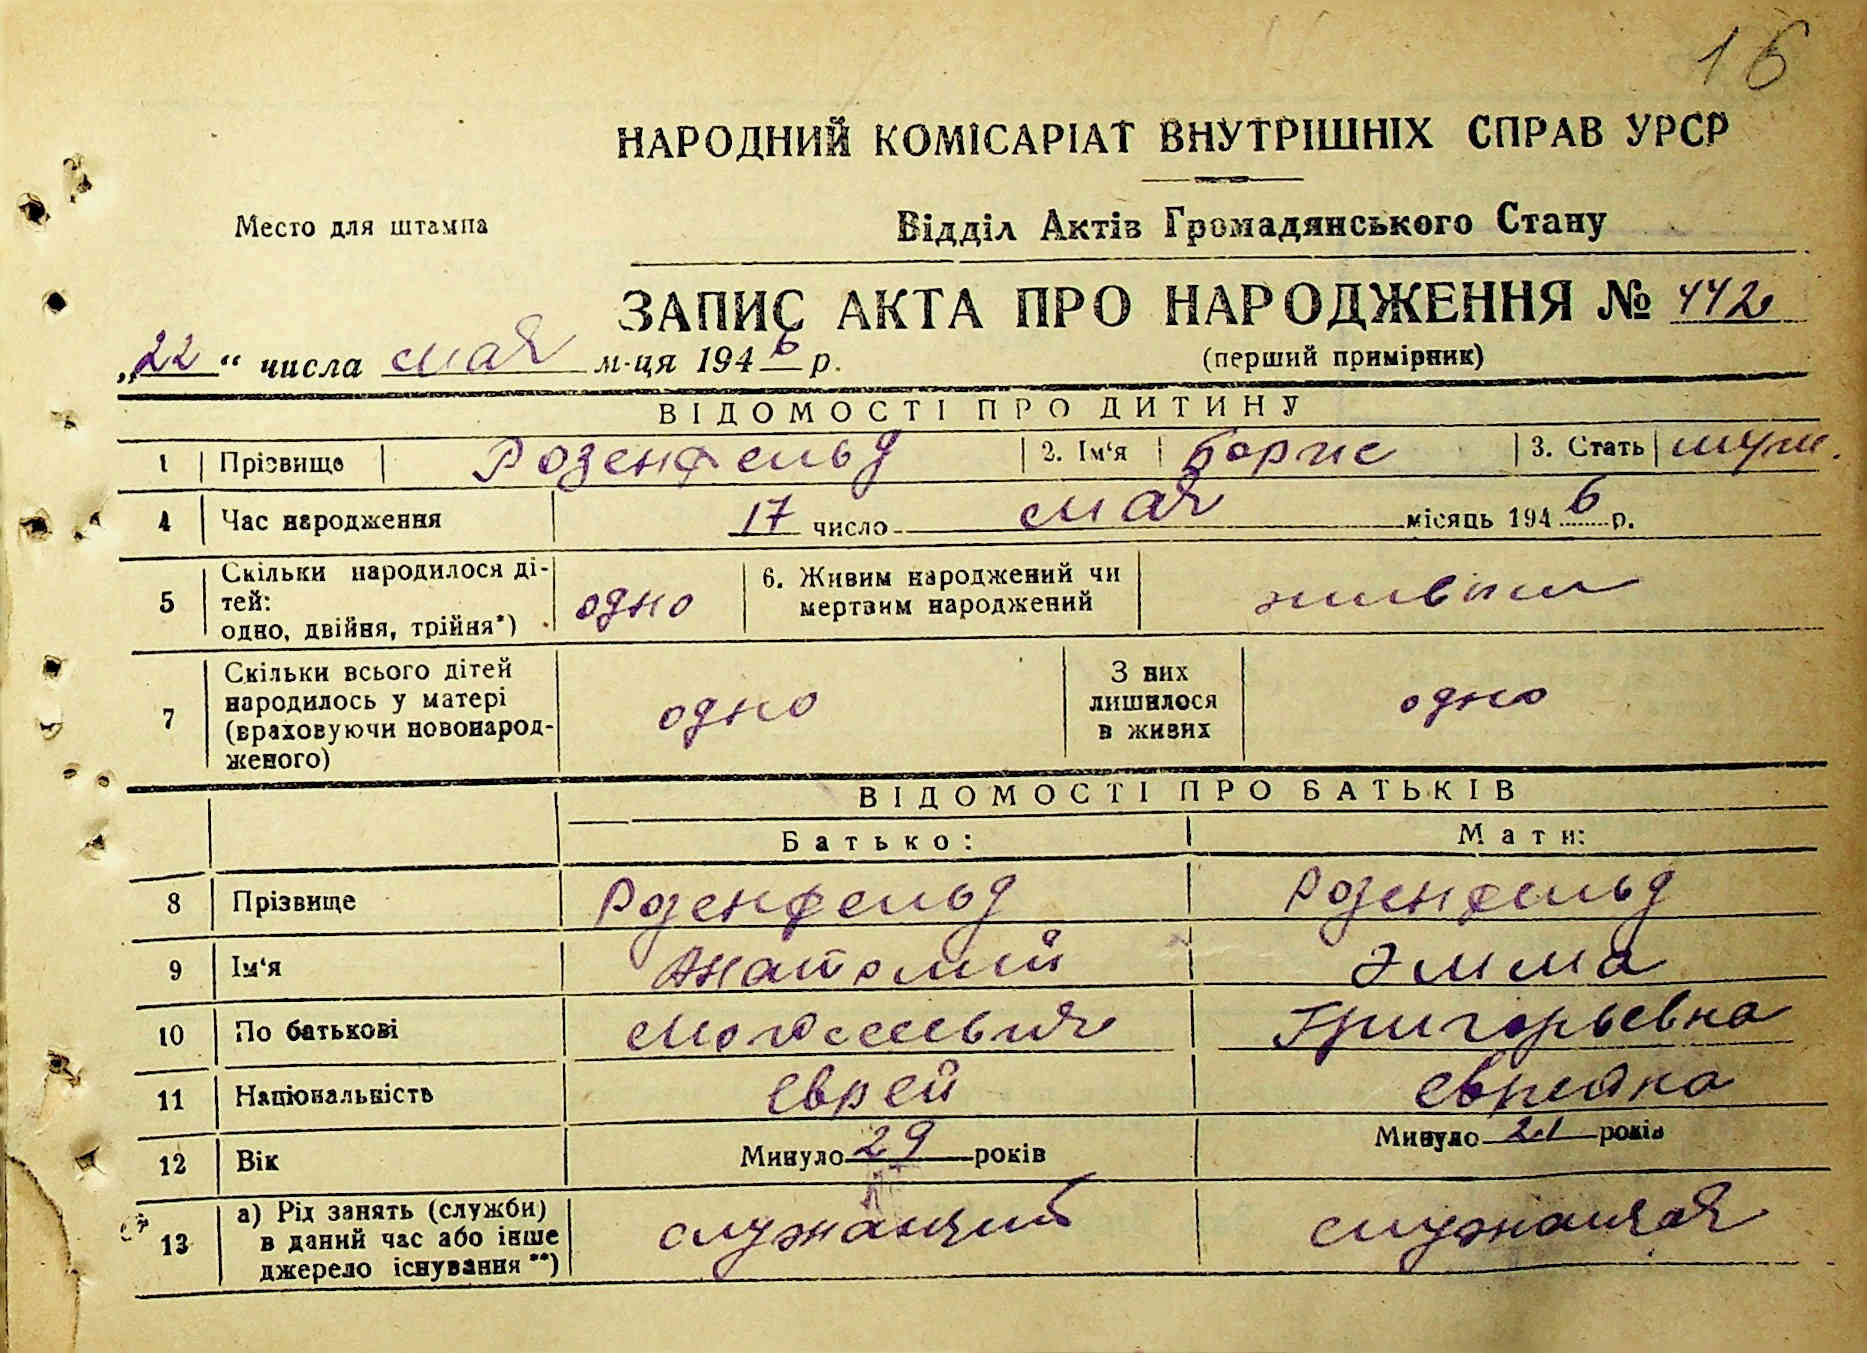 16
НАРОДНИЙ КОМІСАРІАТ ВНУТРІШНІХ СПРАВ УРСР
Место для штампа
Відділ Актів Громадянського Стану
ЗАПИС АКТА ПРО НАРОДЖЕННЯ № 442
„22“ числа мая м-ця 1946 р.
(перший примірник)
ВІДОМОСТІ ПРО ДИТИНУ
1 Прізвище Розенфельд 2. Ім‘я Борис 3. Стать муж.
4 Час народження 17 число мая місяць 1946 р.
5 Скільки народилося ді-
тей:
одно, двійня, трійня*) одно
6. Живим народжений чи
мертвим народжений живым
7 Скільки всього дітей
народилось у матері
(враховуючи новонарод-
женого) одно
З них
лишилося
в живих одно
ВІДОМОСТІ ПРО БАТЬКІВ
Батько: Мати:
8 Прізвище Розенфельд Розенфельд
9 Ім‘я Анатолий Эмма
10 По батькові Моисеевич Григорьевна
11 Національність еврей еврейка
12 Вік Минуло 29 років Минуло 21 років
13 а) Рід занять (служби)
в даний час або інше
джерело існування **) служащий служащая